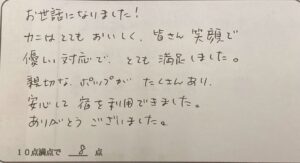 お世話になりました!
カニはとてもおいしく、皆さん笑顔で
優しい対応で、とても満足しました。
親切な、ポップがたくさんあり、
安心して宿を利用できました。
ありがとうございました。
10点満点で 8 点